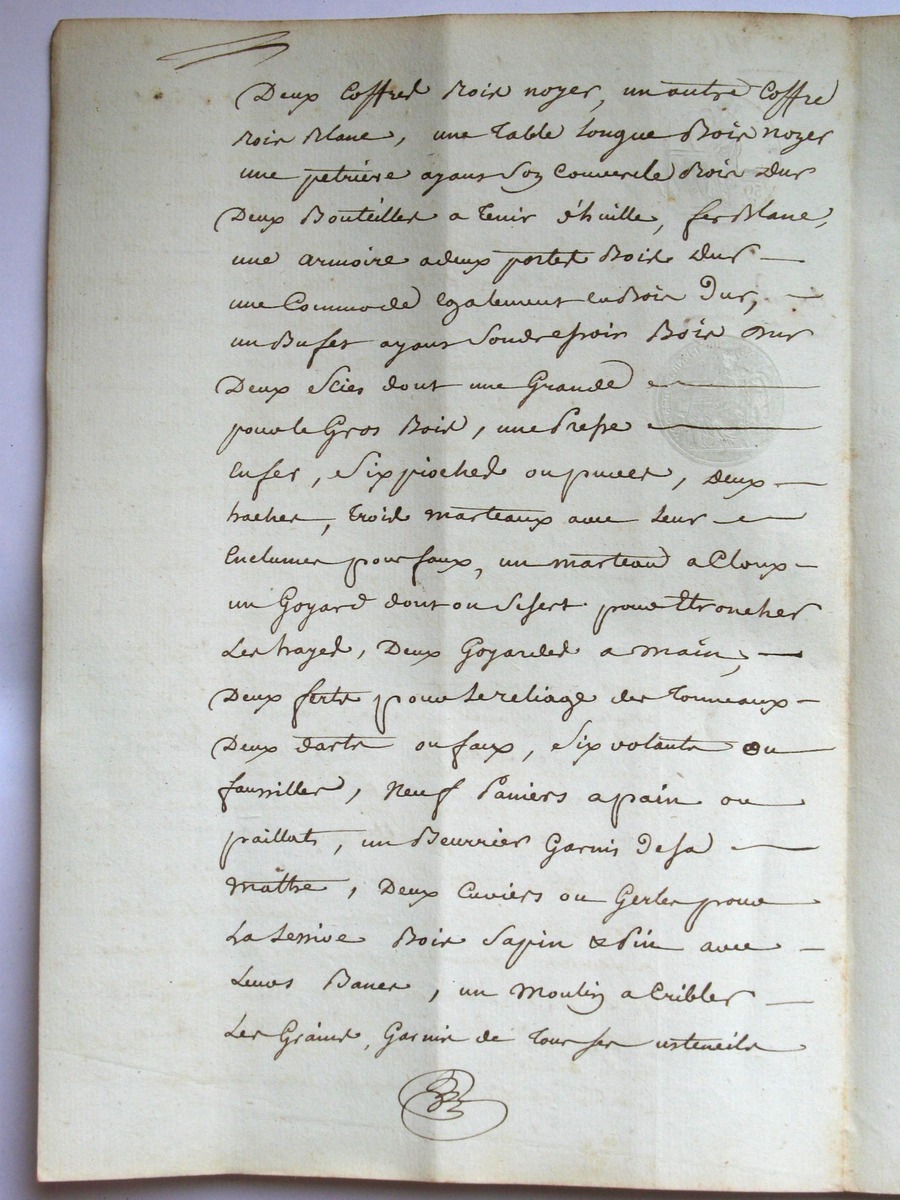 Deux Coffres Bois noyer, un autre Coffre
Bois Blanc, une Table longue Bois noyer
une petrière ayant Son Couvercle Bois Dur
Deux Bouteilles a Tenir d'huille, fer Blanc,
une armoire a deux portes Bois Dur
une Commode Egalement en Bois Dur,
un Bufet ayant Son dressoir Bois Dur
Deux Scies dont une Grande
pour le Gros Bois, une Presse
En fer, Six pioches ou puces, Deux
haches, Trois marteaux avec Leur
Enclumes pour faux, un marteau a Cloux
un Goyard dont on Se sert pour Etroncher
Les hayes, Deux Goyardes a main,
Deux ferts pour Le reliage des Tonneaux
Deux darts ou faux, Six volants ou
faussilles, Neuf Paniers a pain ou
paillats, un Beurrier Garnis de sa
Matthe, Deux Cuviers ou Gerles pour
La Lessive Bois Sapin & Pin avec
Leurs Bancs, un Moulin a Cribler
Les Grains, Garnis de Tous ses usteneils